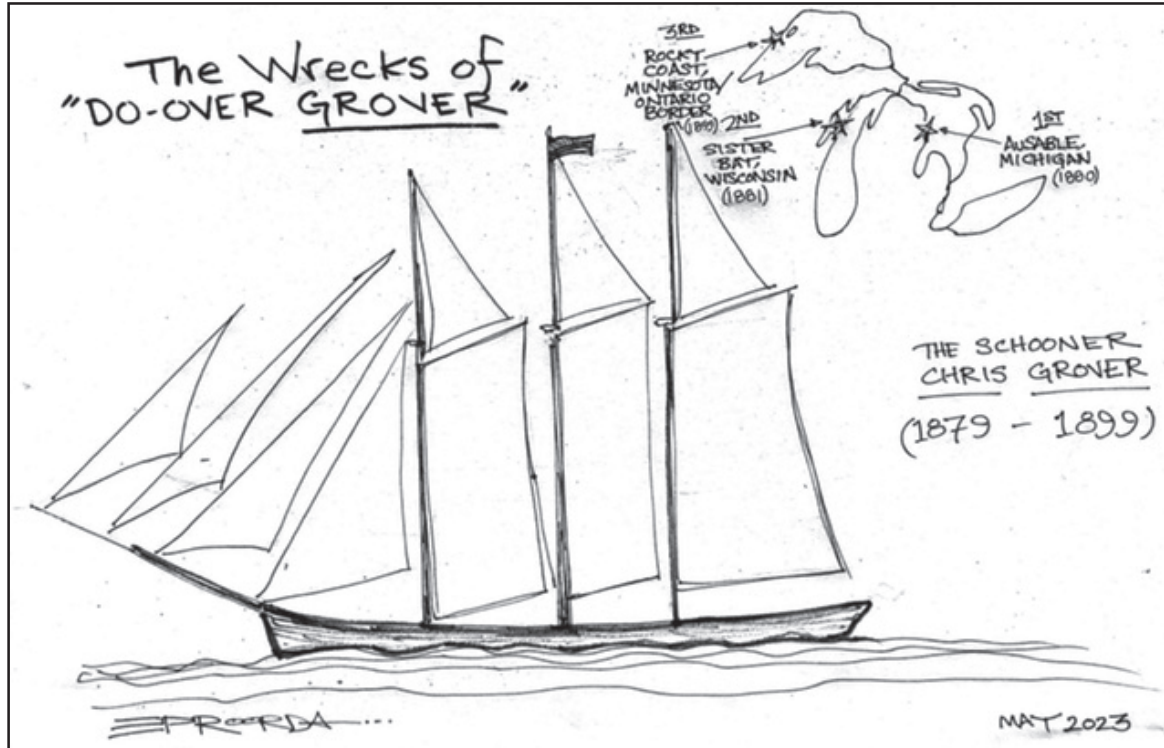 The Wrecks of
"DO-OVER GROVER"
3RD
ROCKY
COAST,
MINNESOTA/
ONTARIO
BORDER
2ND
SISTER
BAY,
WISCONSIN
(1881)
1ST
AUSABLE,
MICHIGAN
(1880)
THE SCHOONER
CHRIS GROVER
(1879 - 1899)
EPROORDA...
MAY 2023